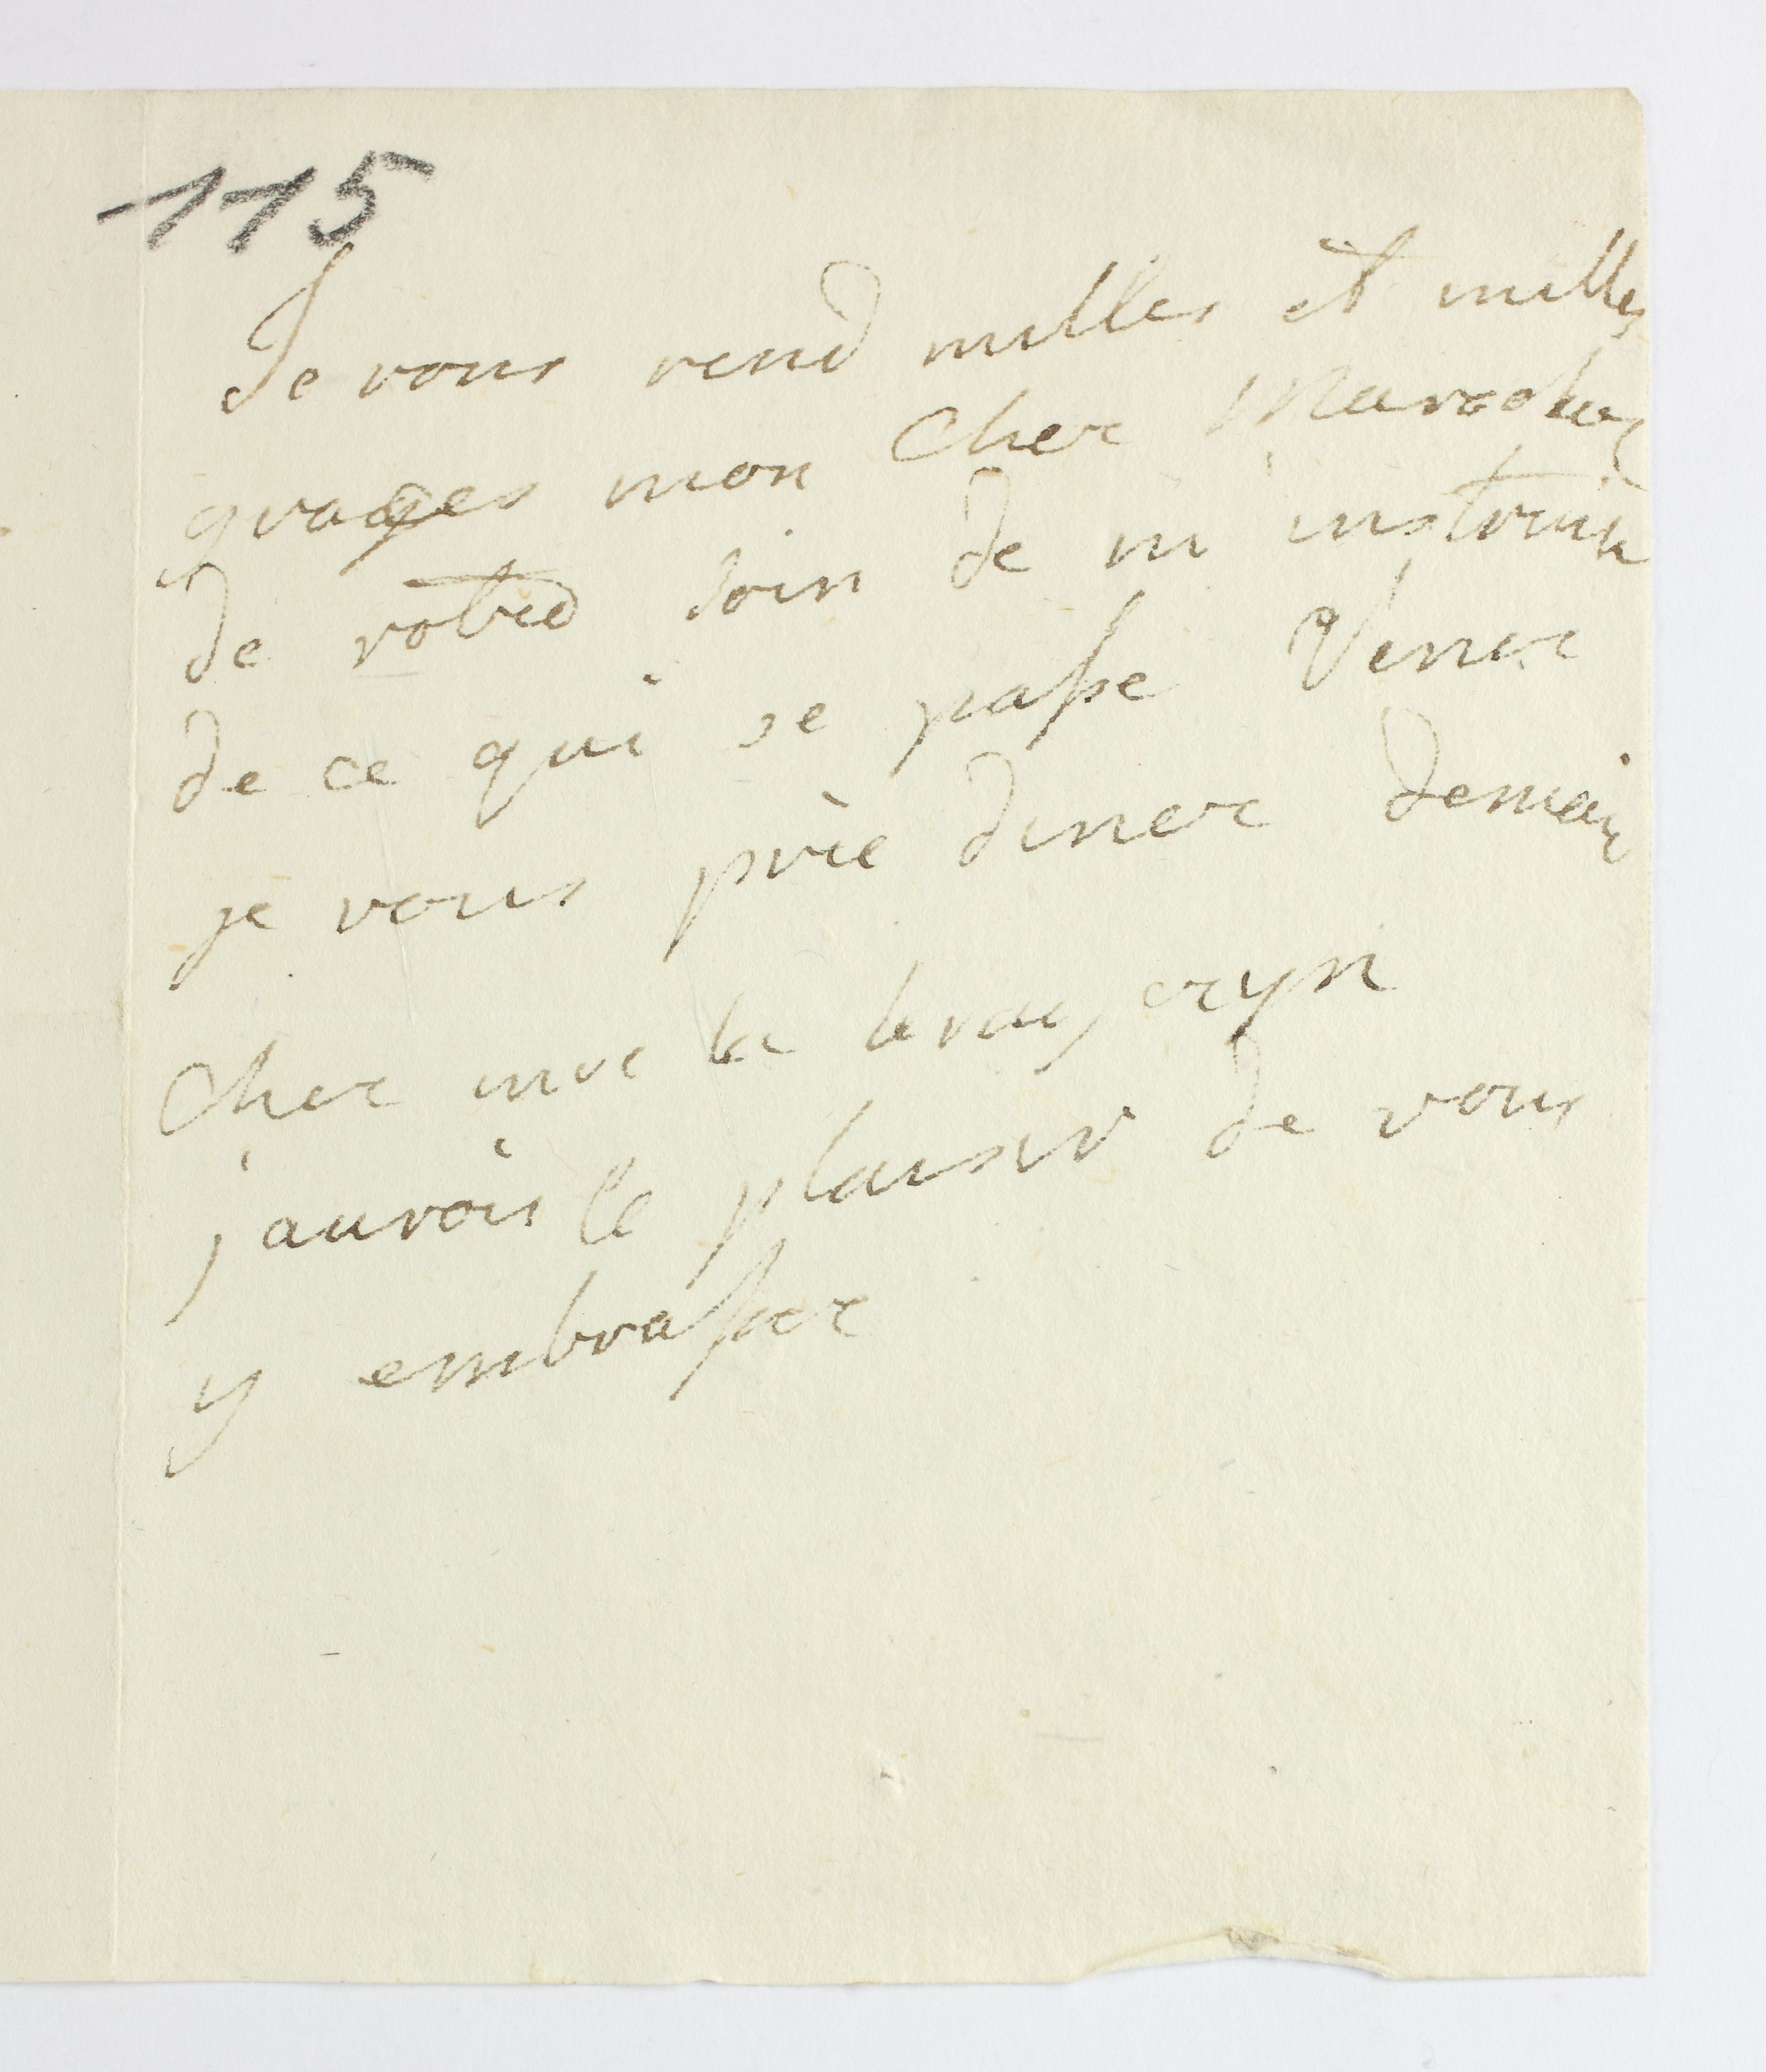 115
Je vous rend milles et milles
graces mon Cher Marechal
de votre soin de m instruire
de ce qui se passe Vener
je vous prie diner demain
Cher
j aurois le plaisir de vous
y embrasser